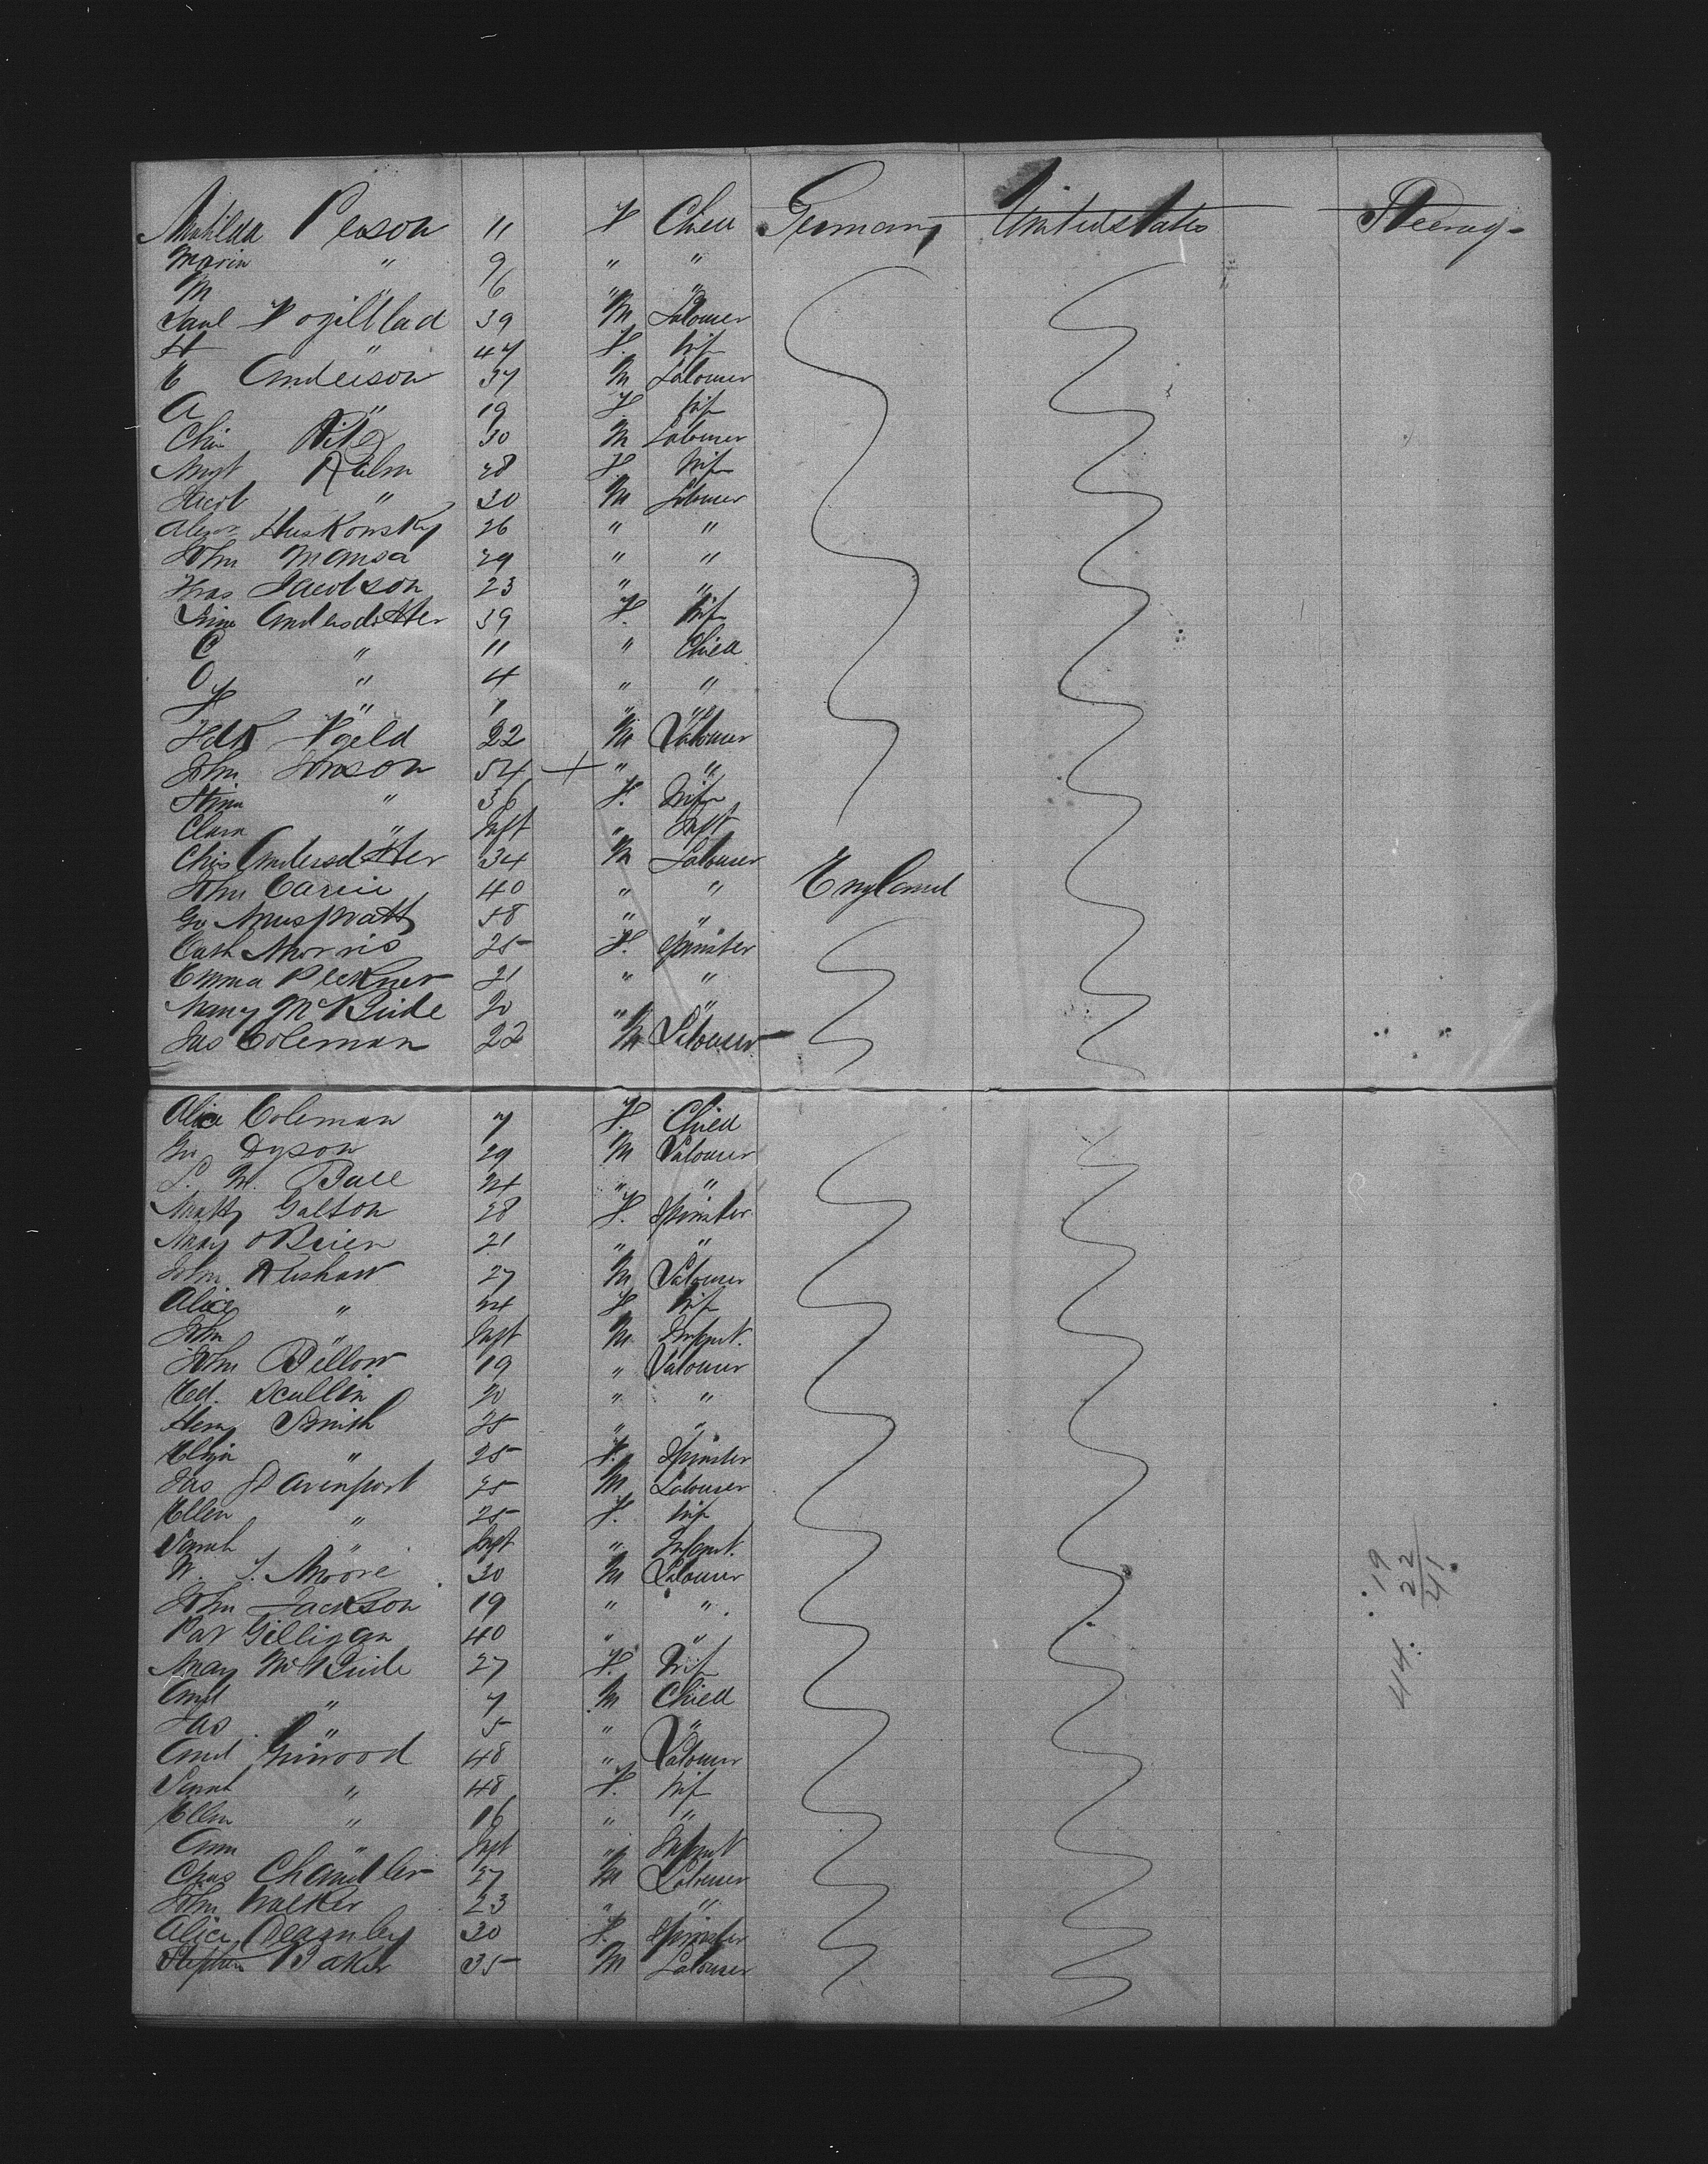 Matilda Peason 11 F Child Germany United States Steerag-
Maria " 9 " "
M " 6 " "
Paul 39 M Labourer
H " 47 F. Wif
E Anderson 37 M Labourer
A " 19 F. Wif
Chri 30 M Labourer
Mrgt 28 F. Wif
Jacob " 30 M Labourer
Alex Huskowsky 26 " "
John Mansa 29 " "
Hras Jacobson 23 " "
Andersdotter 39 F. Wif
C " 11 " Child
O " 4 " "
F " " "
22 M Labourer
John Jonson 54 + " "
Stina " 36 F. Wife
Clara " Inft " Inft
Chrs Andersdotter 34 M Labourer
John 40 " " England
Go Muspratt 58 " "
Cath Morris 25 F. Spinster
Emma 21 " "
Mary McBride 20 " "
Jas Coleman 22 M Labourer
Alice Coleman 7 F. Child
Go Dyson 29 M Labourer
S. W. Ball 24 " "
Matty Galton 28 F. Spinster
Mary OBrien 21 " "
John 27 M Labourer
Alice " 24 F Wif
John " Inft M Infant.
John Billow 19 " Labourer
Ed. Scullin 20 " "
Henry Smith 25 " "
Eliza " 25 F. Spinster
Jas Davenport 25 M Labourer
Ellen " 25 F. Wif
Sarah " Inft " Infant.
W. S. Moore 30 M Labourer
John Jackson 19 " "
Pat Gilligan 40 " "
Mary McBride 27 F. Wif
" 7 M Child
Jas " 5 " "
48 " Labourer
Sarah " 48 F. Wif
Ellen " 16 " "
Ann " Inft " Infant
Chas Chandler 27 M Labourer
John Walker 23 " "
Alice Dearnley 30 F. Spinster
Stephen Baker 35 M Labourer
19
22
41.
44.